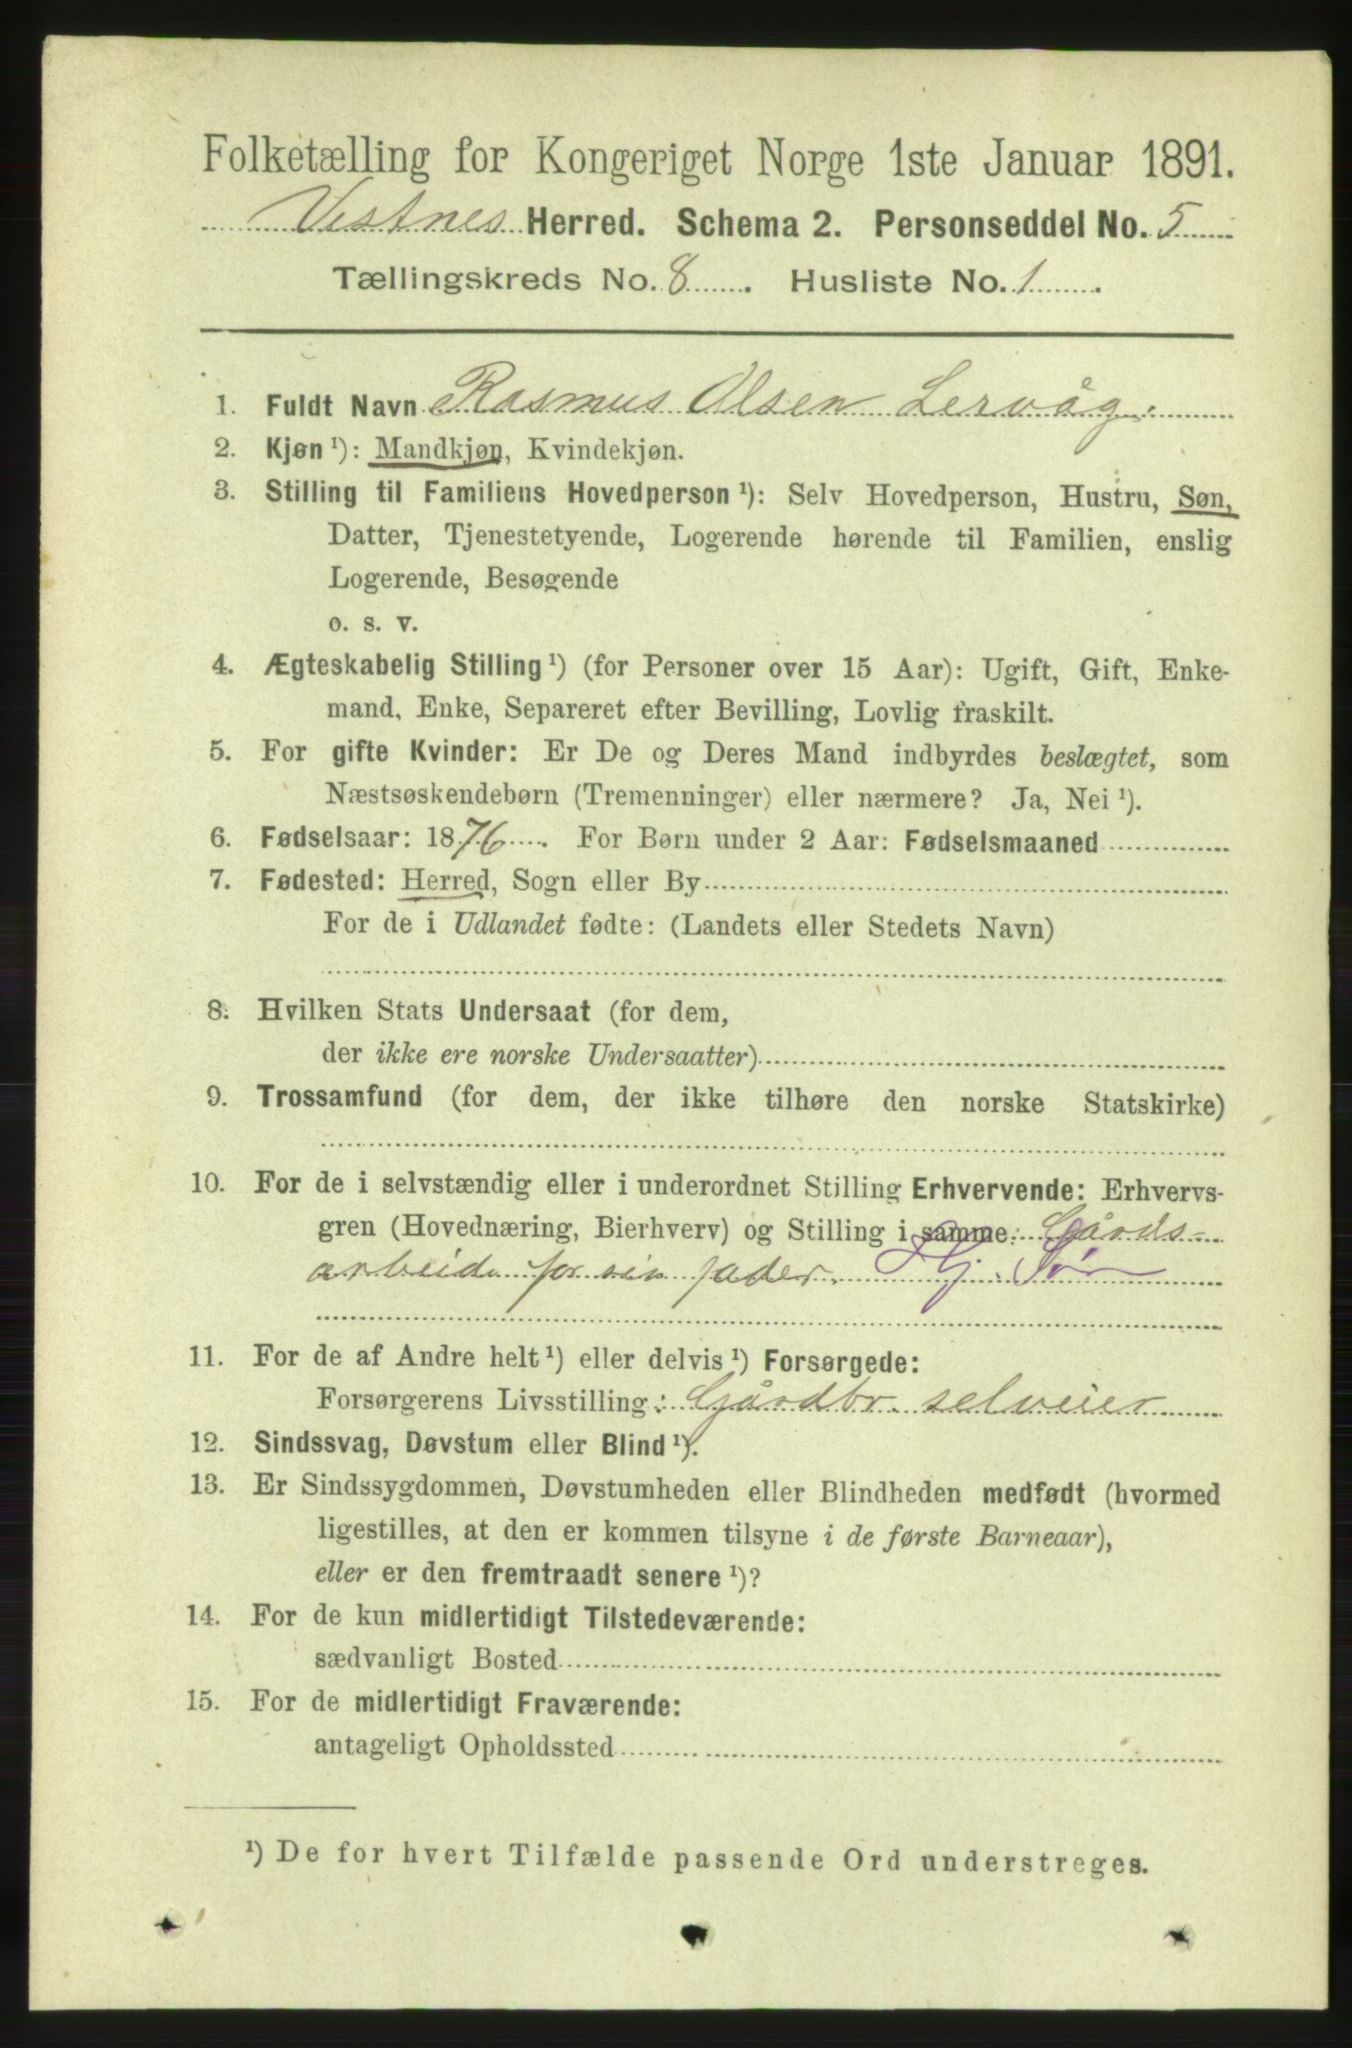 Folketælling for Kongeriget Norge 1ste Januar 1891.
Vestnes Herred. Schema 2. Personseddel No. 5
Tællingskreds No. 8. Husliste No. 1.
1. Fuldt Navn Rasmus Olsen Lervåg.
2. Kjøn ¹): Mandkjøn, Kvindekjøn.
3. Stilling til Familiens Hovedperson ¹): Selv Hovedperson, Hustru, Søn,
Datter, Tjenestetyende, Logerende hørende til Familien, enslig
Logerende, Besøgende
o. s. v.
4. Ægteskabelig Stilling ¹) (for Personer over 15 Aar): Ugift, Gift, Enke-
mand, Enke, Separeret efter Bevilling, Lovlig fraskilt.
5. For gifte Kvinder: Er De og Deres Mand indbyrdes beslægtet, som
Næstsøskendebørn (Tremenninger) eller nærmere? Ja, Nei ¹).
6. Fødselsaar: 1876. For Børn under 2 Aar: Fødselsmaaned
7. Fødested: Herred, Sogn eller By
For de i Udlandet fødte: (Landets eller Stedets Navn)
8. Hvilken Stats Undersaat (for dem,
der ikke ere norske Undersaatter)
9. Trossamfund (for dem, der ikke tilhøre den norske Statskirke)
10. For de i selvstændig eller i underordnet Stilling Erhvervende: Erhvervs-
gren (Hovednæring, Bierhverv) og Stilling i samme: Gårds-
arbeide for sin fader. Hj. Søn
11. For de af Andre helt ¹) eller delvis ¹) Forsørgede:
Forsørgerens Livsstilling: Gårdbr. selveier
12. Sindssvag, Døvstum eller Blind ¹).
13. Er Sindssygdommen, Døvstumheden eller Blindheden medfødt (hvormed
ligestilles, at den er kommen tilsyne i de første Barneaar),
eller er den fremtraadt senere ¹)?
14. For de kun midlertidigt Tilstedeværende:
sædvanligt Bosted
15. For de midlertidigt Fraværende:
antageligt Opholdssted
¹) De for hvert Tilfælde passende Ord understreges.